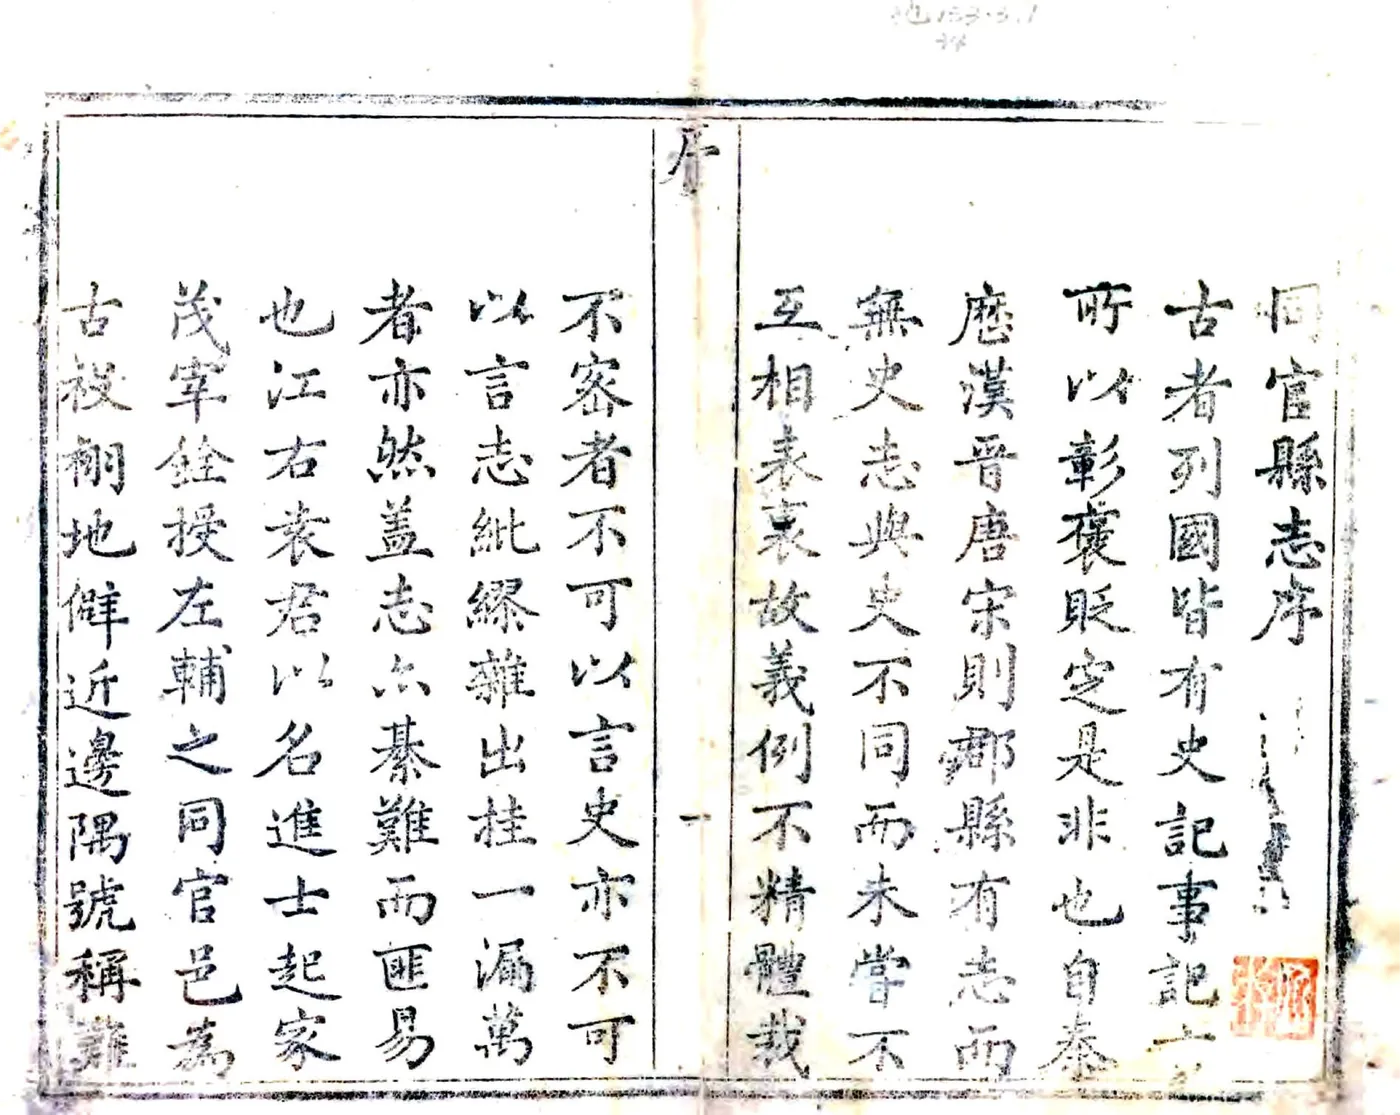 同官縣志序
古者列國皆有史記事記言
所以彰褒貶定是非也自秦
歷漢晉唐宋則郡縣有志而
無史志與史不同而未嘗不
互相表裏故義例不精體裁
序
一
不密者不可以言史亦不可
以言志紕繆雜出挂一漏萬
者亦然盖志之綦難而匪易
也江右袁君以名進士起家
茂宰銓授左輔之同官邑為
古祋祤地僻近邊隅號稱難